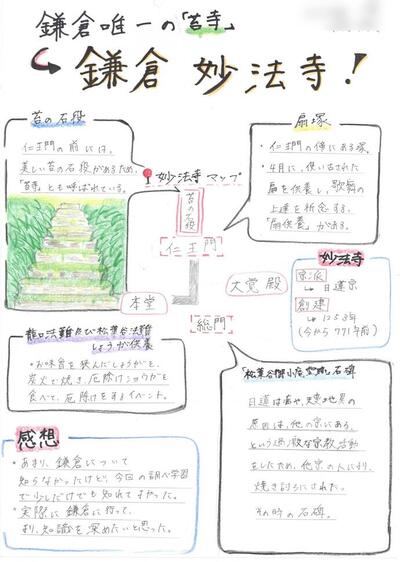 鎌倉唯一の「苔寺」
鎌倉 妙法寺！
苔の石段
仁王門の前には、
美しい苔の石段があるため、
「苔寺」とも呼ばれている。
妙法寺マップ
苔の石段
仁王門
本堂
大覚殿
総門
扇塚
・仁王門の傍にある塚。
・4月に、使い古された
扇を供養し、歌舞の
上達を祈念する、
「扇供養」がある。
妙法寺
宗派
↳日蓮宗
創建
↳1253年
(今から771年前)
龍口法難及び松葉谷法難
しょうが供養
・お味噌を挟んだしょうがを、
炭火で焼き、厄除けショウガを
食べて、厄除けをするイベント。
「松葉谷御小庵」石碑
日蓮は
原因は、他の宗にある、
という過激な宗教活動
をしたため、他宗の人により、
焼き討ちにされた。
その時の石碑。
感想
・あまり、鎌倉について
知らなかったけど、今回の調べ学習
で少しだけでも知れてよかった。
・実際に鎌倉に行って、
より、知識を深めたいと思った。